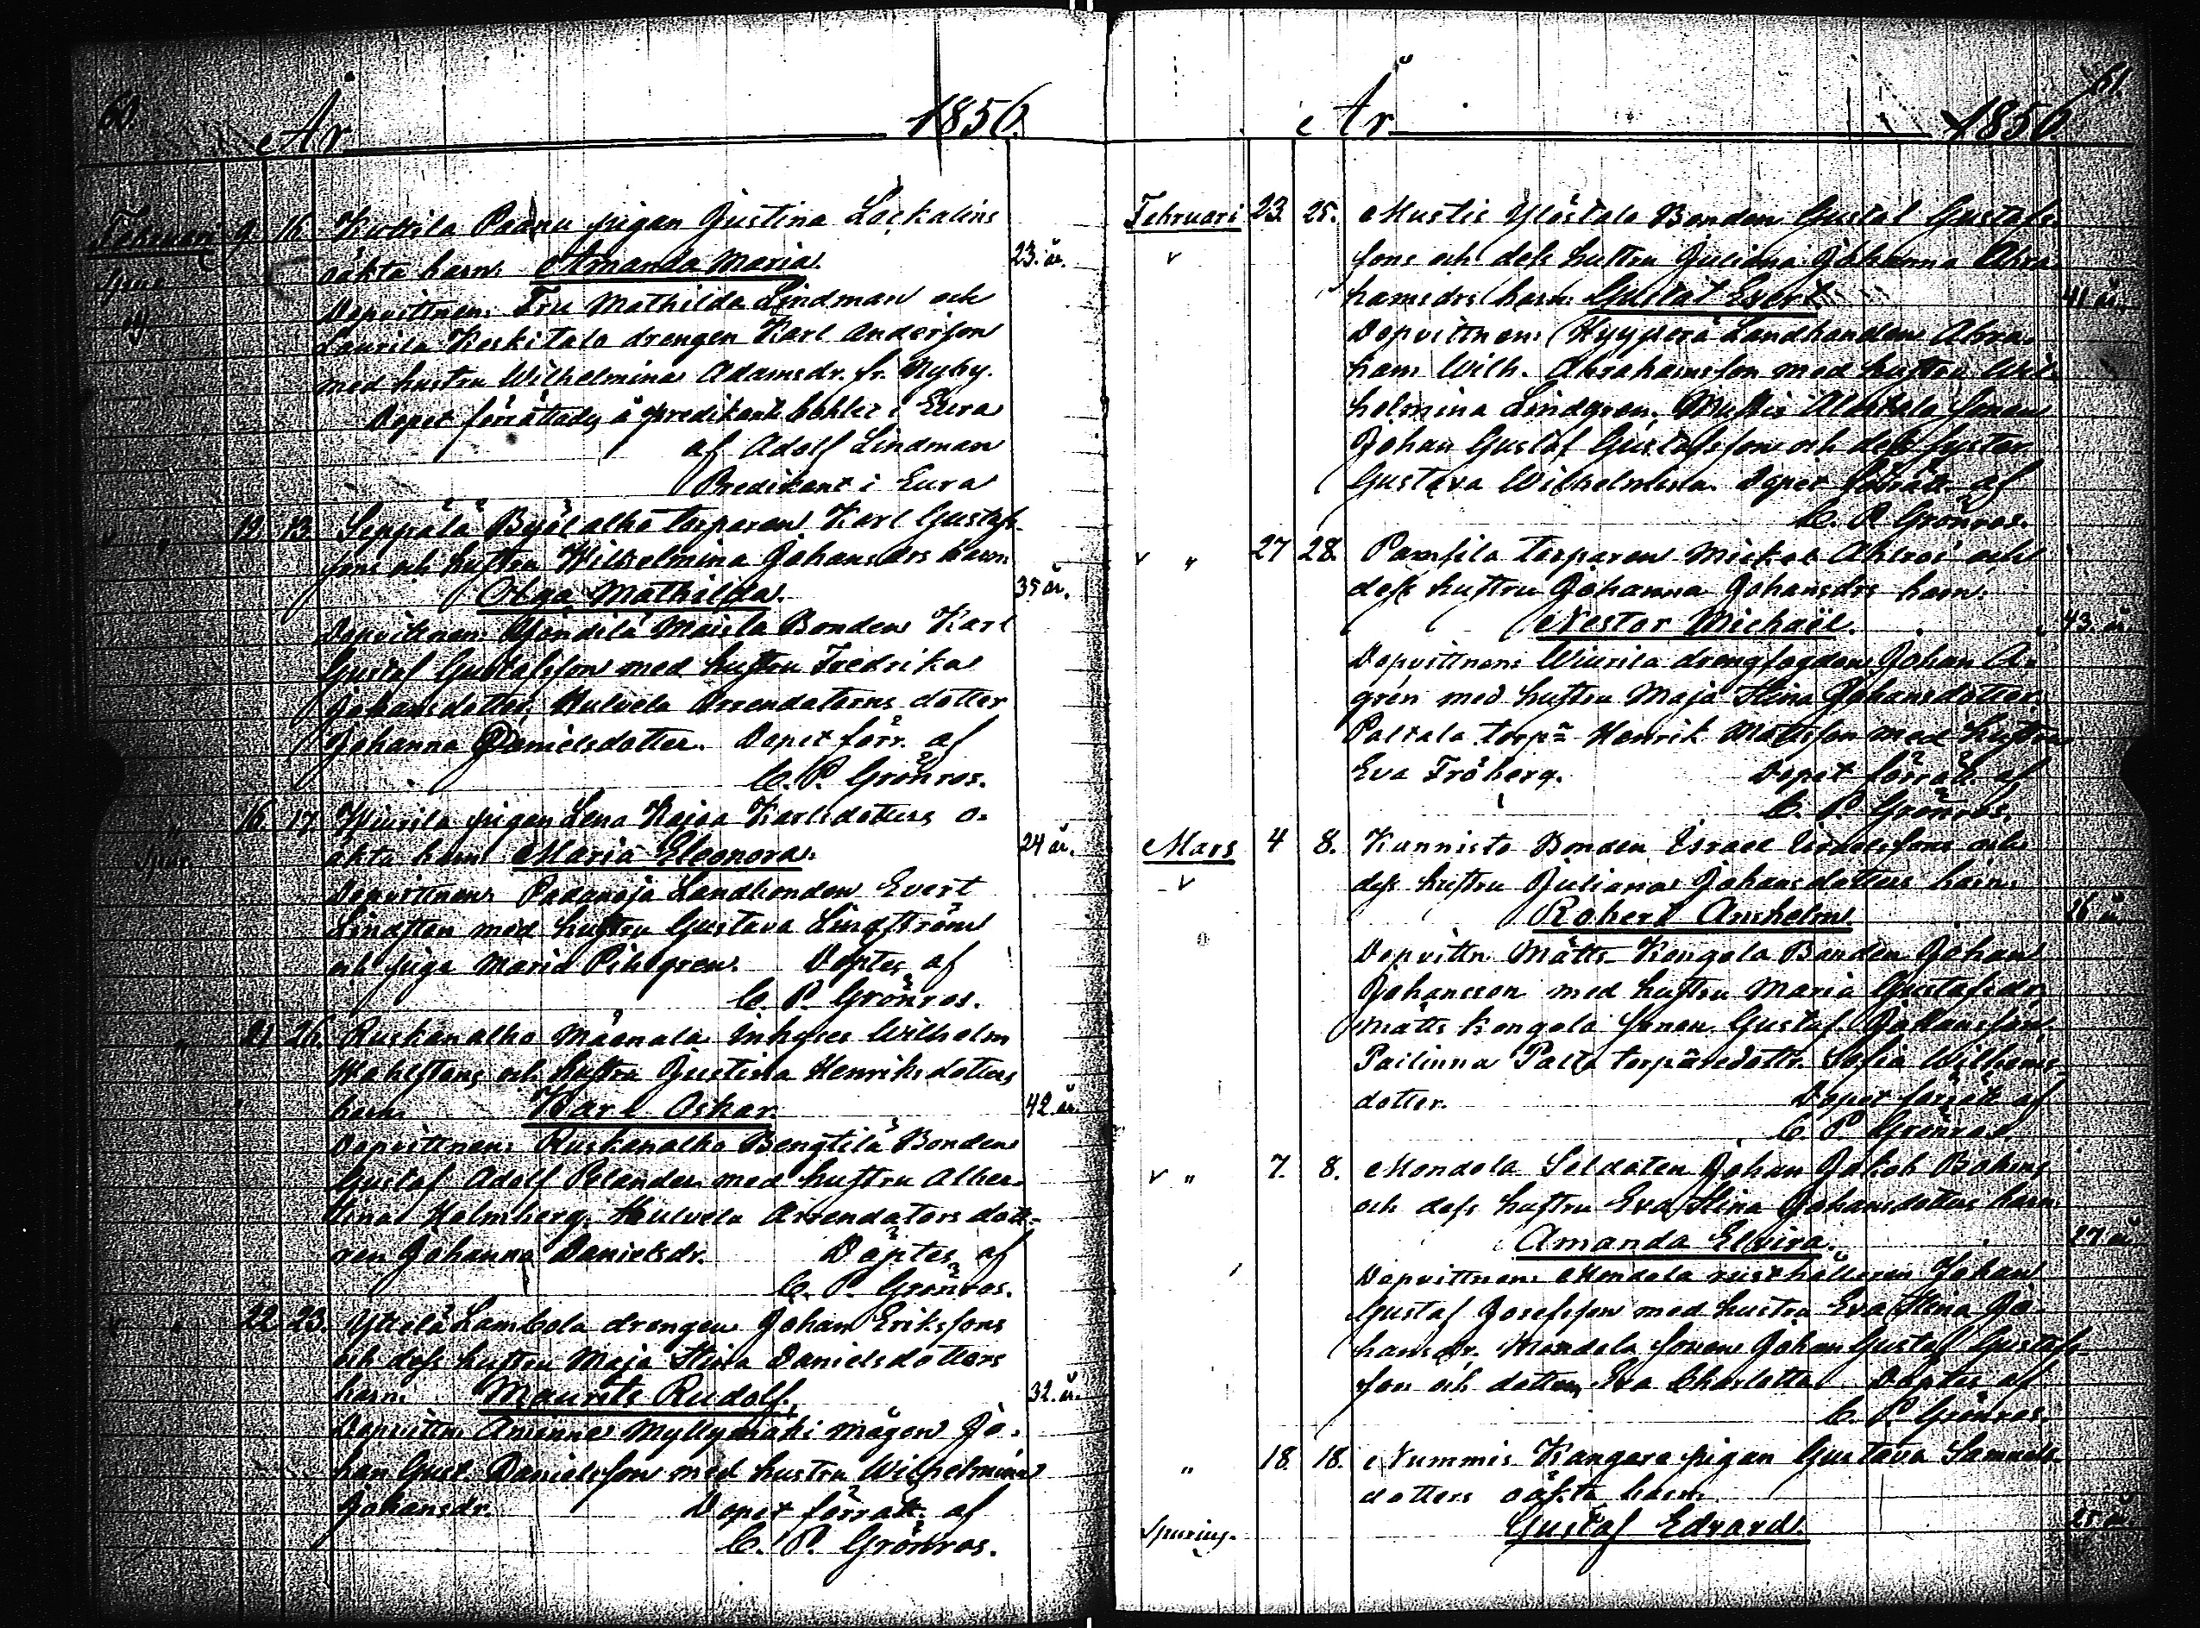 60.
År 1856.
Februari 9. 16. Kuttila Paanu pigan Justina Lockalins
Spur. oäkta barn. Amanda Maria. 23. år.
Dopvittnen. Fru Mathilda Lindman och
Laurila Keskitalo drengen Karl Andersson
med hustru Wilhelmina Adamsdr. fr. Nyby.
Dopet förrättades å predikants bohlet i Eura
af Adolf Lindman
Predikant i Eura
v " 12. 13. Seppälä Byölalho torparen Karl Gustafs-
sons och hustru Wilhelmina Johansdrs barn
Olga Mathilda. 35 år.
Dopvittnen. Maisla Bonden Karl
Gustaf Gustafsson med hustru Fredrika
Johansdotter, Hulvela Arrendatorns dotter
Johanna Danielsdotter. Dopet förr. af
C. P. Grönroos.
" 16. 17. Wiurila pigan Lena Kajsa Karlsdotters o-
Spur. äkta barn Maria Eleonora. 24 år.
Dopvittnen. Padanoja Landbonden Evert
Lindsten med hustru Gustava Lindström
och piga Maria Pihlgren. Döptes af
C. P. Grönroos.
" 21. 26. Ruskanalho Mäenala Inhyses Wilhelm
Wahlstens och hustru Justina Henriksdotters
barn. Karl Oskar. 42. år.
Dopvittnen. Ruskanalho Bengtilä Bonden
Gustaf Adolf Polander med hustru Alber-
tina Holmberg. Hulvela Arrendators dott-
ren Johanna Danielsdr. Döptes af
C. P. Grönroos.
v " 22. 23. Yttelä Lambola drengen Johan Erikssons
och dess hustru Maja Stina Danielsdotters
barn. Maurits Rudolf. 32. år.
Dopvittn. Aminne Myllymäki mågen Jo-
han Gust. Danielsson med hustru Wilhelmina
Johansdr. Dopet förrätt. af
C. P. Grönroos.
61.
År 1856
Februari 23. 25. Mustis Ylöstalo Bonden Gustaf Gustafs-
v sons och dess hustru Juliana Johanna Abra-
hamsdrs barn. Gustaf Evert 41 år.
Dopvittnen. Hyyperä Landbonden Abra-
ham Wilh. Abrahamsson med hustru Wil-
helmina Lindgren, Mustis Alastalo sonen
Johan Gustaf Gustafsson och dess syster
Gustava Wilhelmina. Dopet förrätt. af
C. P. Grönroos.
v " 27 28. Pamfila torparen Mickel Ahlroi och
dess hustru Johanna Johansdrs barn.
Nestor Michaël. 43. år.
Dopvittnen. Wiurila drengfogden Johan A-
gren med hustru Maja Stina Johansdotter.
Paltala torp= Henrik Mattsson med hustru
Eva Fröberg. Dopet förrätt. af
C. P. Grönroos.
Mars 4 8. Kunnisto Bonden Israel Israelssons och
v dess hustru Juliana Johansdotters barn.
Robert Anshelm. 26 år
Dopvittn. Mätts Kongola Bonden Johan
Johansson med hustru Maria Gustafsdr.
Mätts Kongola sonen Gustaf Johansson,
Pailinna Palta torparedottr. Sofia Wilhelms-
dotter. Dopet förrätt. af
C. P. Grönroos.
v " 7. 8. Mondola Soldaten Johan Jakob Bomans
och dess hustru Eva Stina Johansdotters barn
Amanda Elvira. 27 år
Dopvittnen. Mondola rusthållaren Johan
Gustaf Josefsson med hustru Eva Stina Jo-
hansdr. Mondola sonen Johan Gustaf Gustafs-
son och dottern Eva Charlotta Döptes af
C. P. Grönroos.
" 18. 18. Nummis Kangare pigan Gustava Samuels-
dotters oäkta barn
Spurius. Gustaf Edvard. 25 år